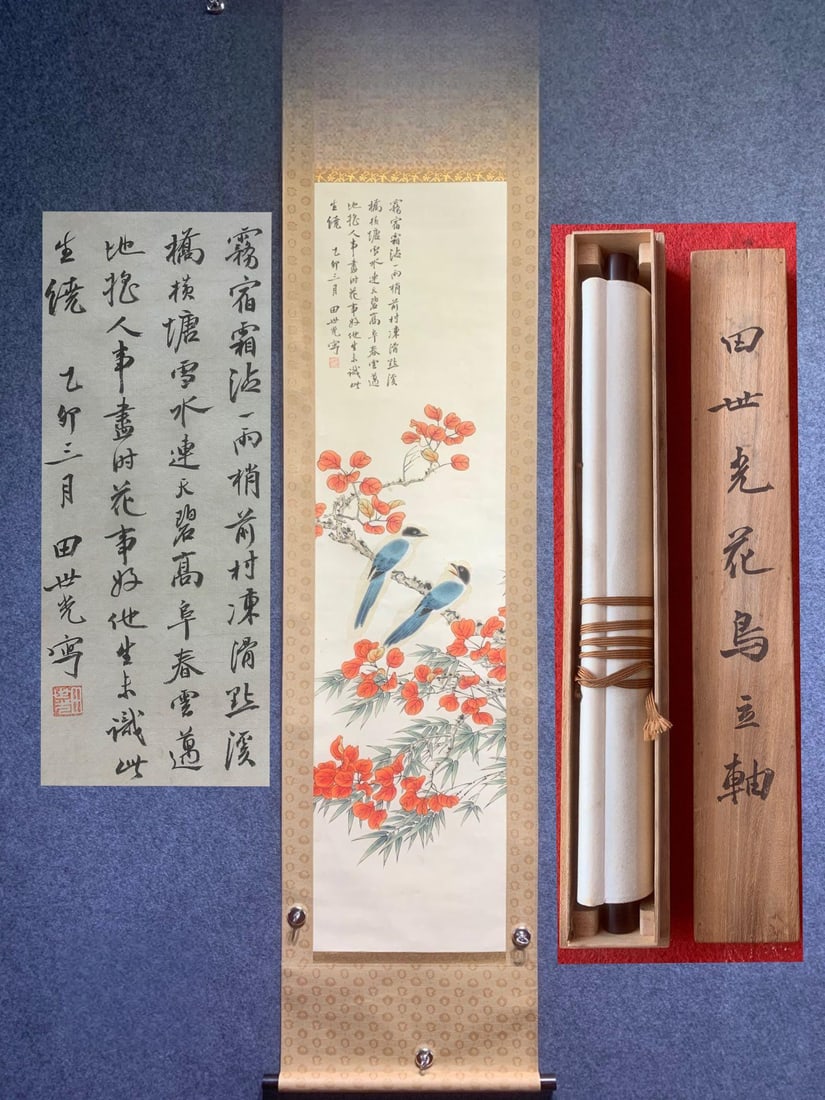 霧宿霜沾一兩梢前村凍滑點溪
橋橫塘雪水連天碧高阜春雲邁
地搖人事盡时花事好他生未識此
生繞
乙卯三月 田世光寫
霧宿霜沾一兩梢前村凍滑點溪
橋橫塘雪水連天碧高阜春雲邁
地搖人事盡时花事好他生未識此
生繞 乙卯三月 田世光寫
田世光花鳥立軸